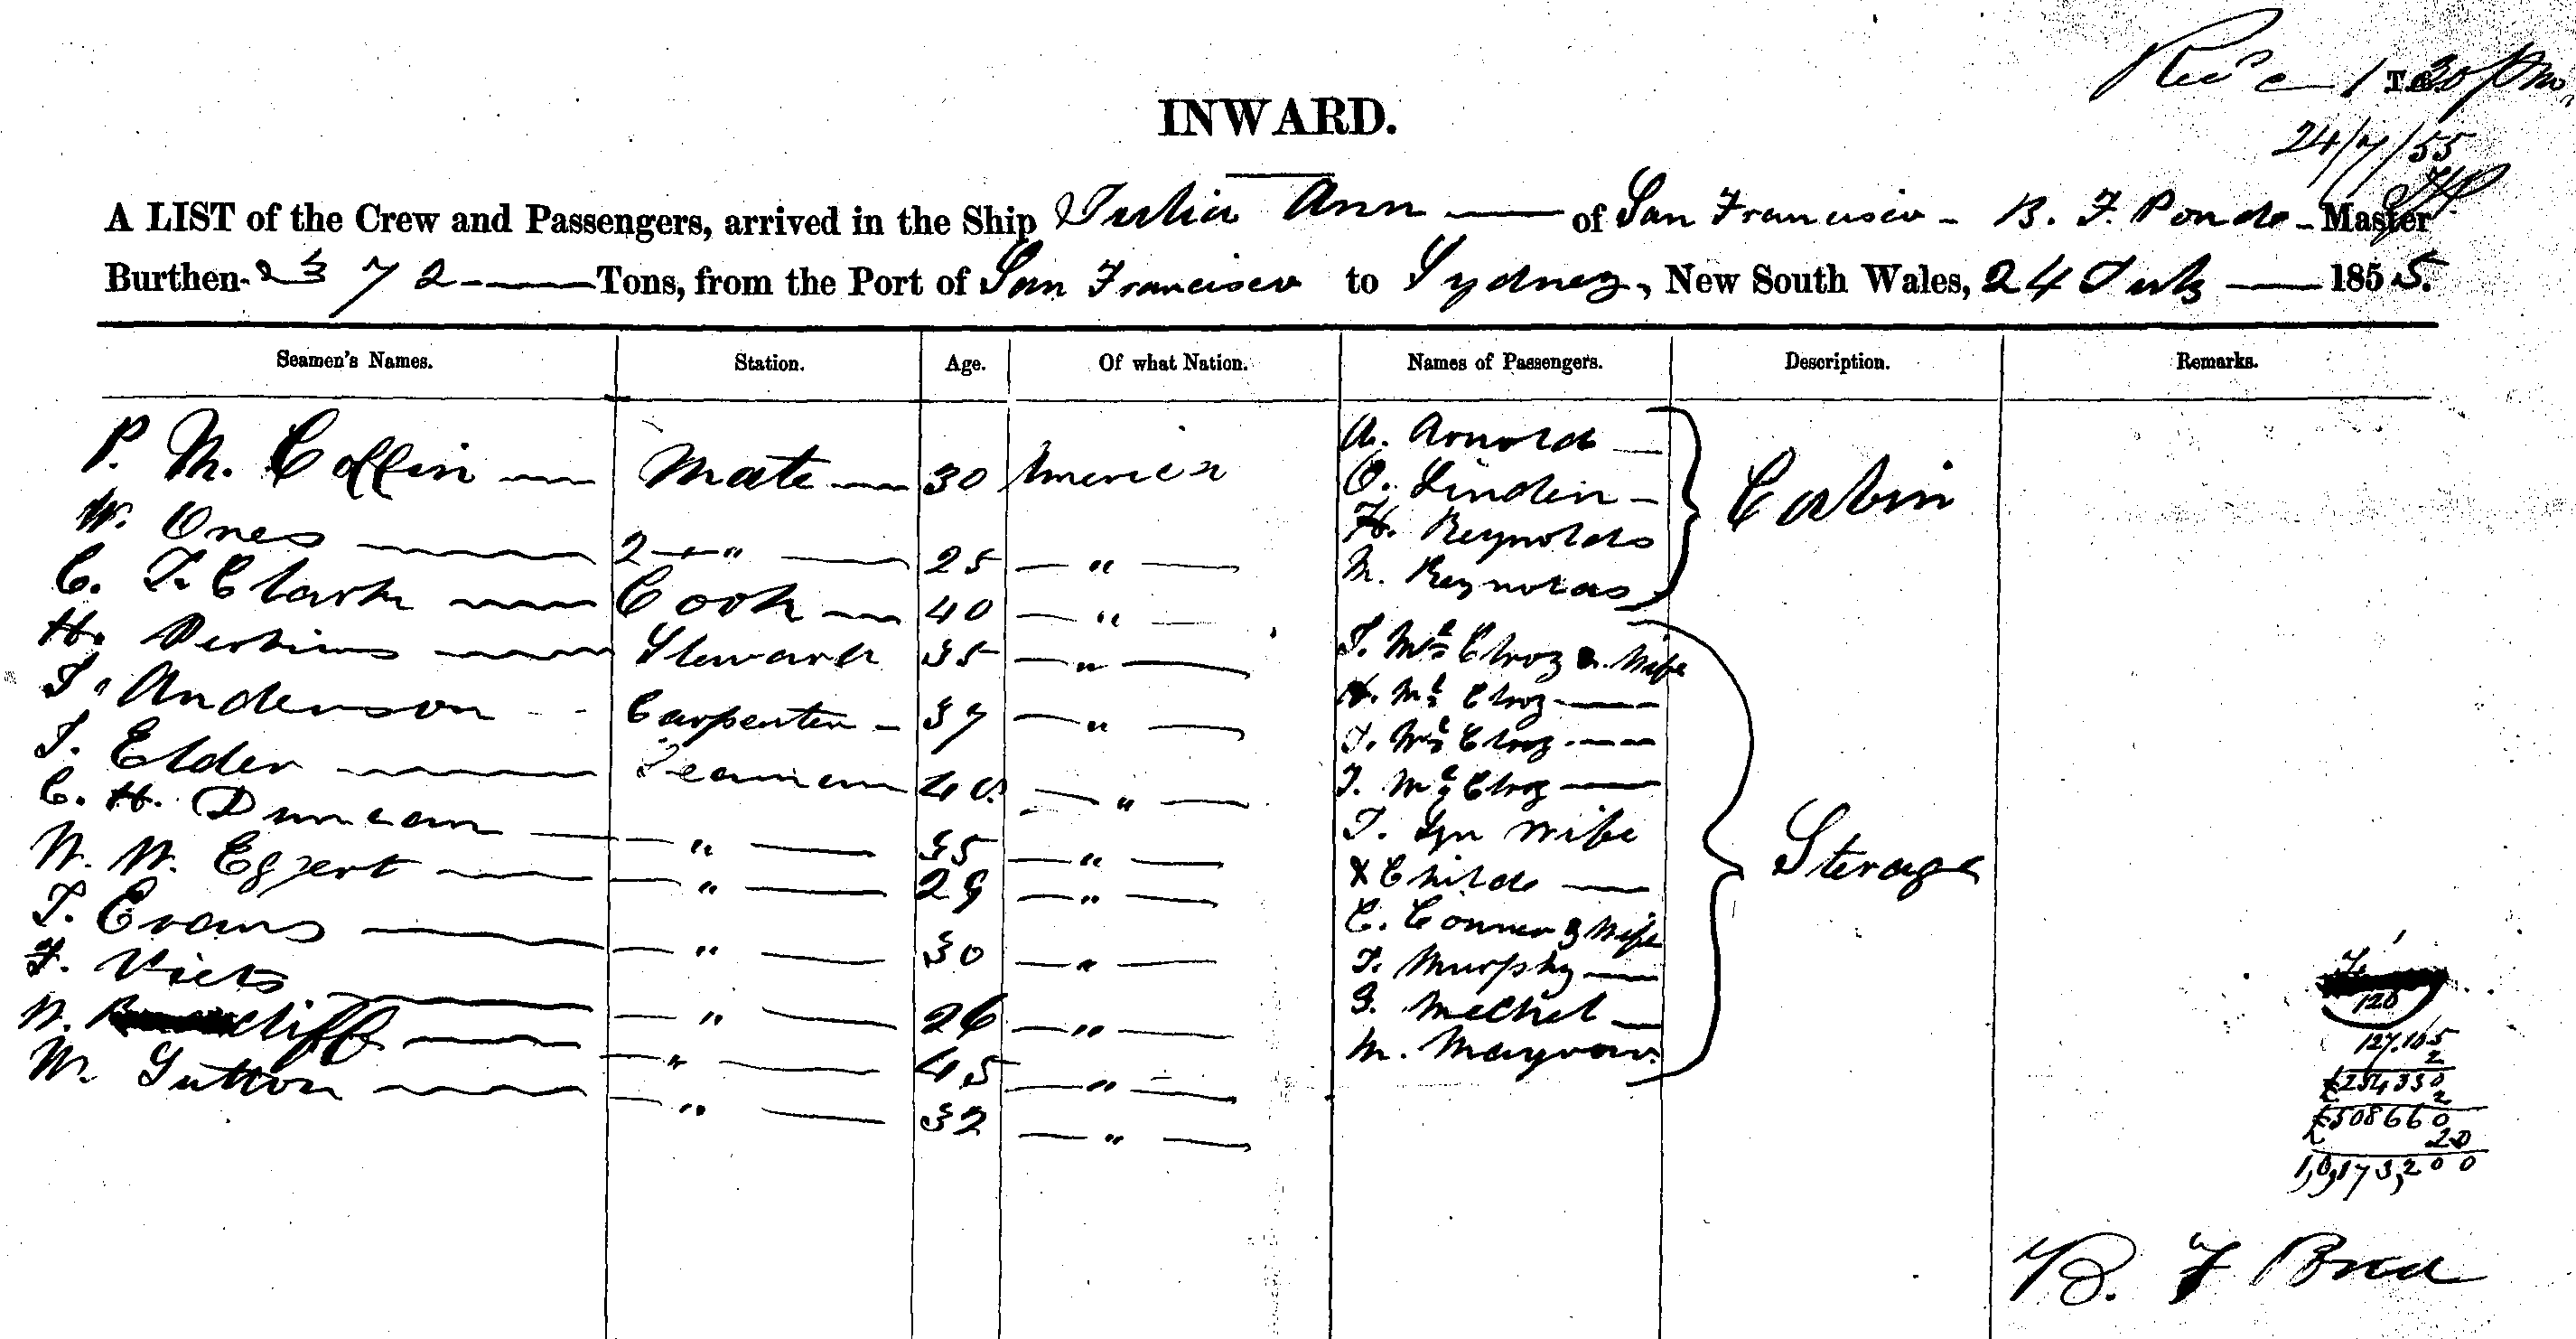 Rec'd 1.30 pm
24/7/55
INWARD.
A LIST of the Crew and Passengers, arrived in the Ship Julia Ann of San Francisco - B. F. Pond - Master
Burthen 372 Tons, from the Port of San Francisco to Sydney, New South Wales, 24 July 1855.
Seamen's Names. Station. Age. Of what Nation. Names of Passengers. Description. Remarks.
P. M. Coffin Mate 30 America
W. Ones 2 " 25 "
C. F. Clark Cook 40 "
H. Perkins Steward 35 "
J. Anderson Carpenter 37 "
J. Elder Seaman 40 "
C. H. Duncan " 35 "
W. W. Egxert " 29 "
J. Evans " 30 "
F. Viets " 26 "
W. cliff " 45 "
M. Sutton " 32 "
A. Arnold
O. Linden
H. Reynolds
M. Reynolds
Cabin
J. McElroy & Wife
H. McElroy
J. McElroy
J. McElroy
J. Wife
& Child
C. Conner & Wife
J. Murphy
G. Mechel
M.
Sterage
120
127,165
2
£254330
2
£508660
20
1,0,173,200
B. F Pond